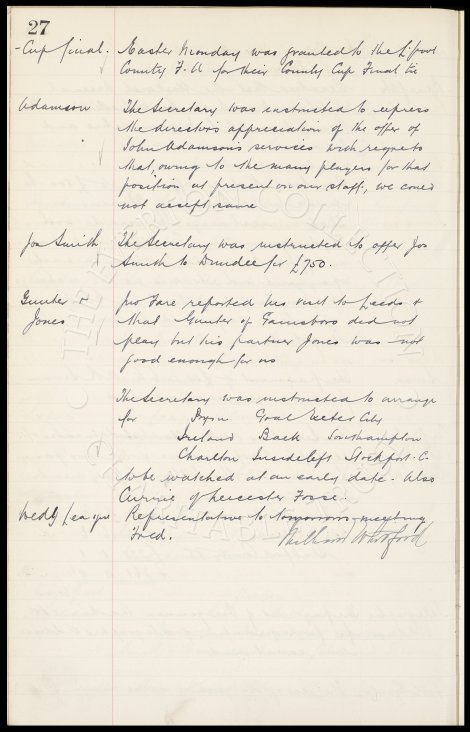 27
- Cup final. Easter Monday was granted to the L'pool
County F. A for their County Cup Final tie
Adamson The Secretary was instructed to express
the directors appreciation of the offer of
John Adamson's services with regrets
that, owing to the many players for that
position at present on our staff, we could
not accept same
Jos Smith The Secretary was instructed to offer Jos
Smith to Dundee for £750.
Gunter & reported his visit to Leeds &
Jones that Gunter of Gainsboro did not
play but his partner Jones was not
good enough for us
The Secretary was instructed to arrange
for Dixon Goal Exeter City
Ireland Back Southampton
Charlton Inside left Stockport. C.
to be watched at an early date. Also
Currie of Leicester Fosse.
Wedy League Representative to tomorrows meeting
fixed.
THE EVERTON COLLECTION
CHARITABLE TRUST